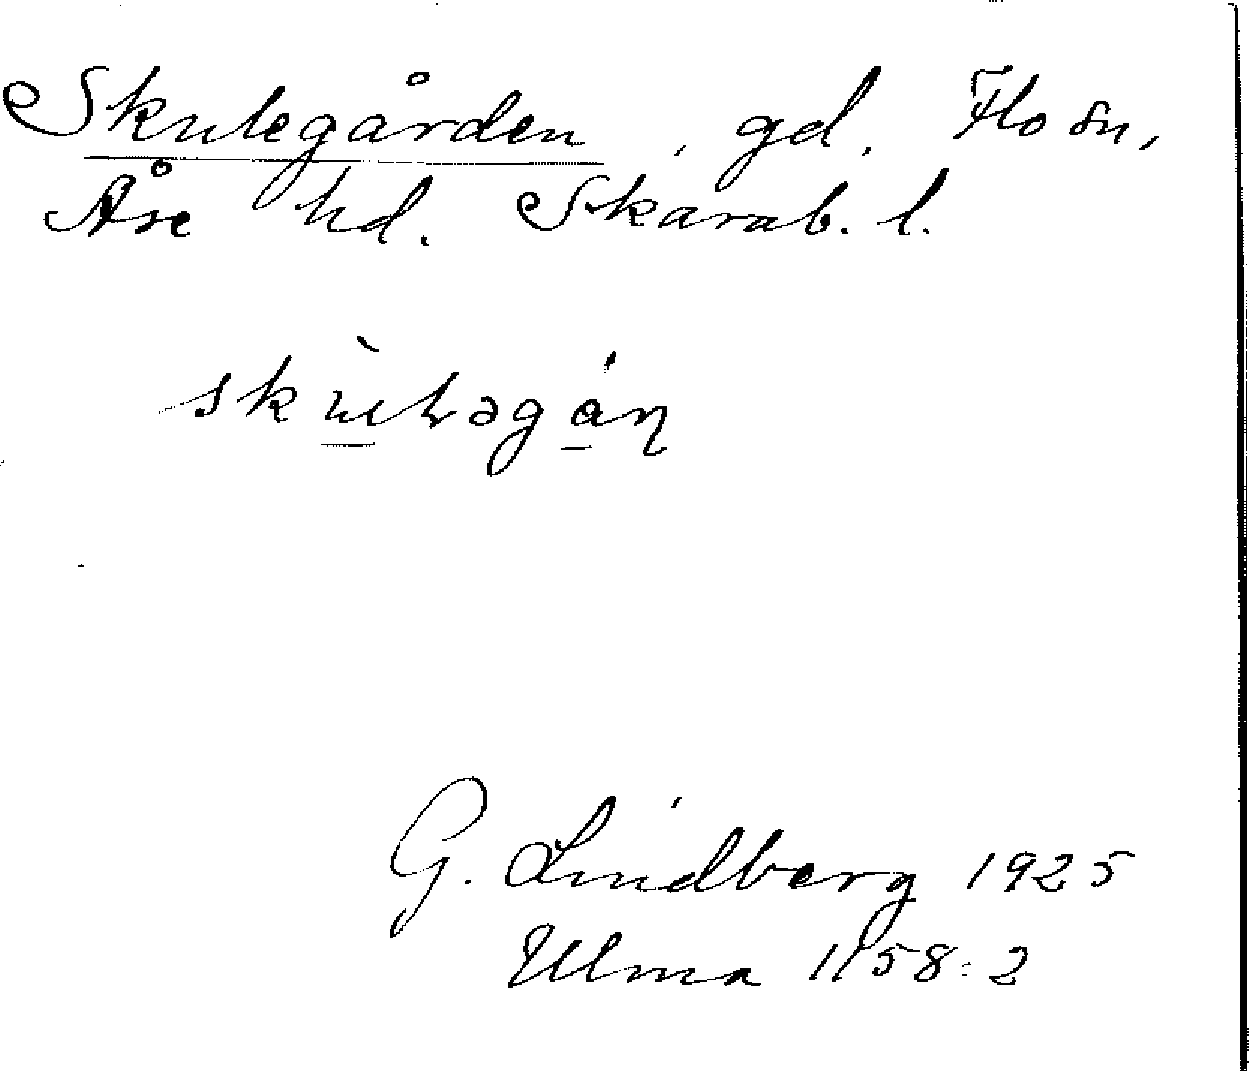 Skulegården, gd. Flo sn,
Åse hd. Skarab. l.
skùlvəgán
G. Lindberg 1925
Ulma 1158:2